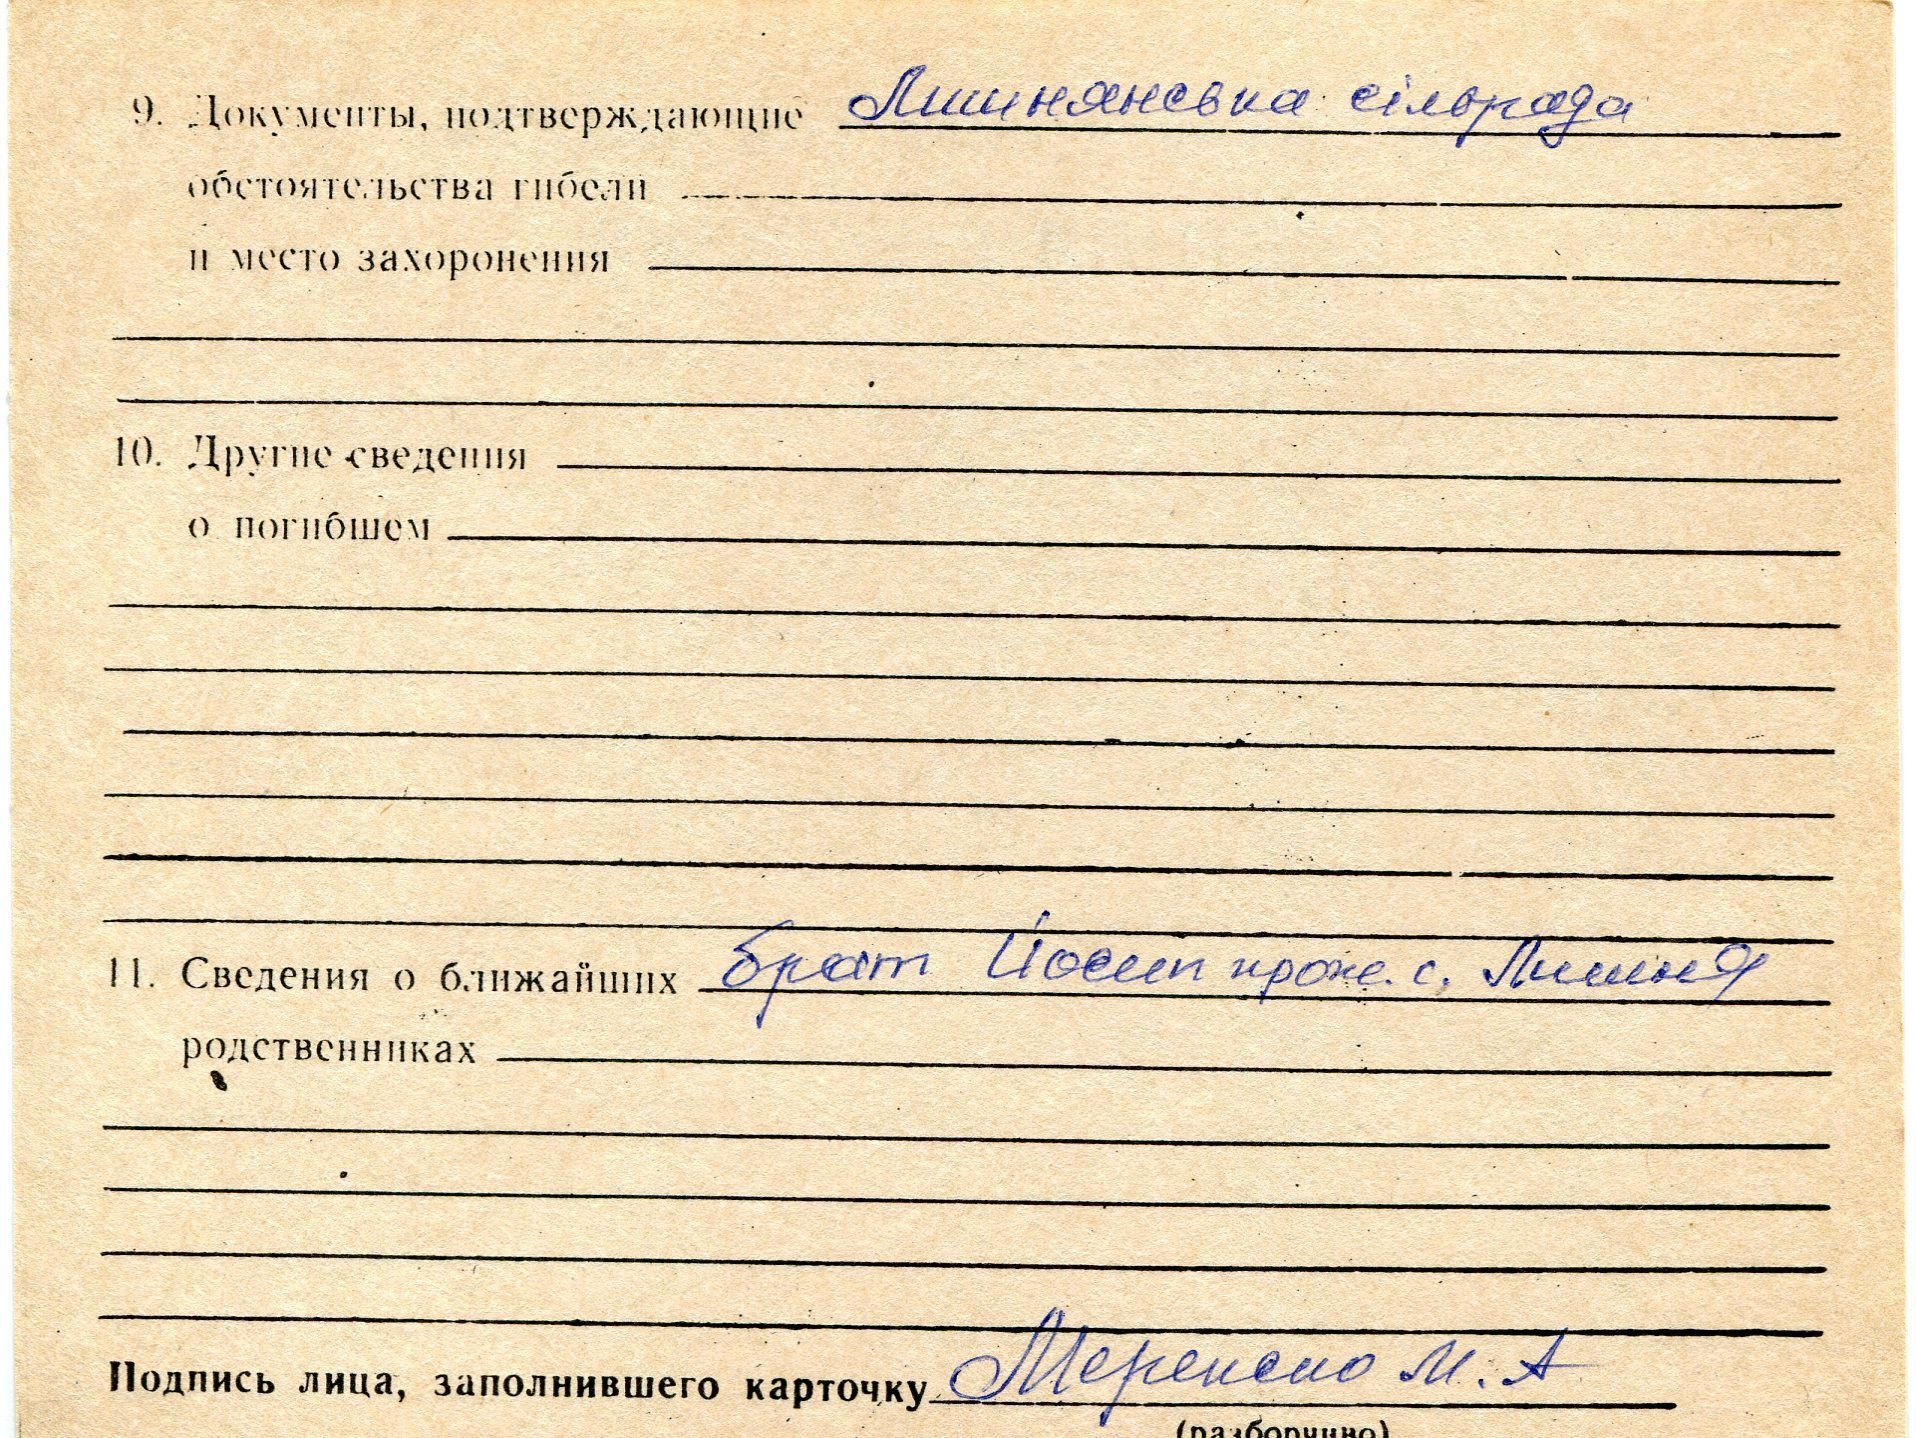 9. Документы, подтверждающие Лишнянська сільрада
обстоятельства гибели
и место захоронения
10. Другие сведения
о погибшем
11. Сведения о ближайших брат Йосип прож. с. Лишня
родственниках
Подпись лица, заполнившего карточку М. А
(разборчиво)